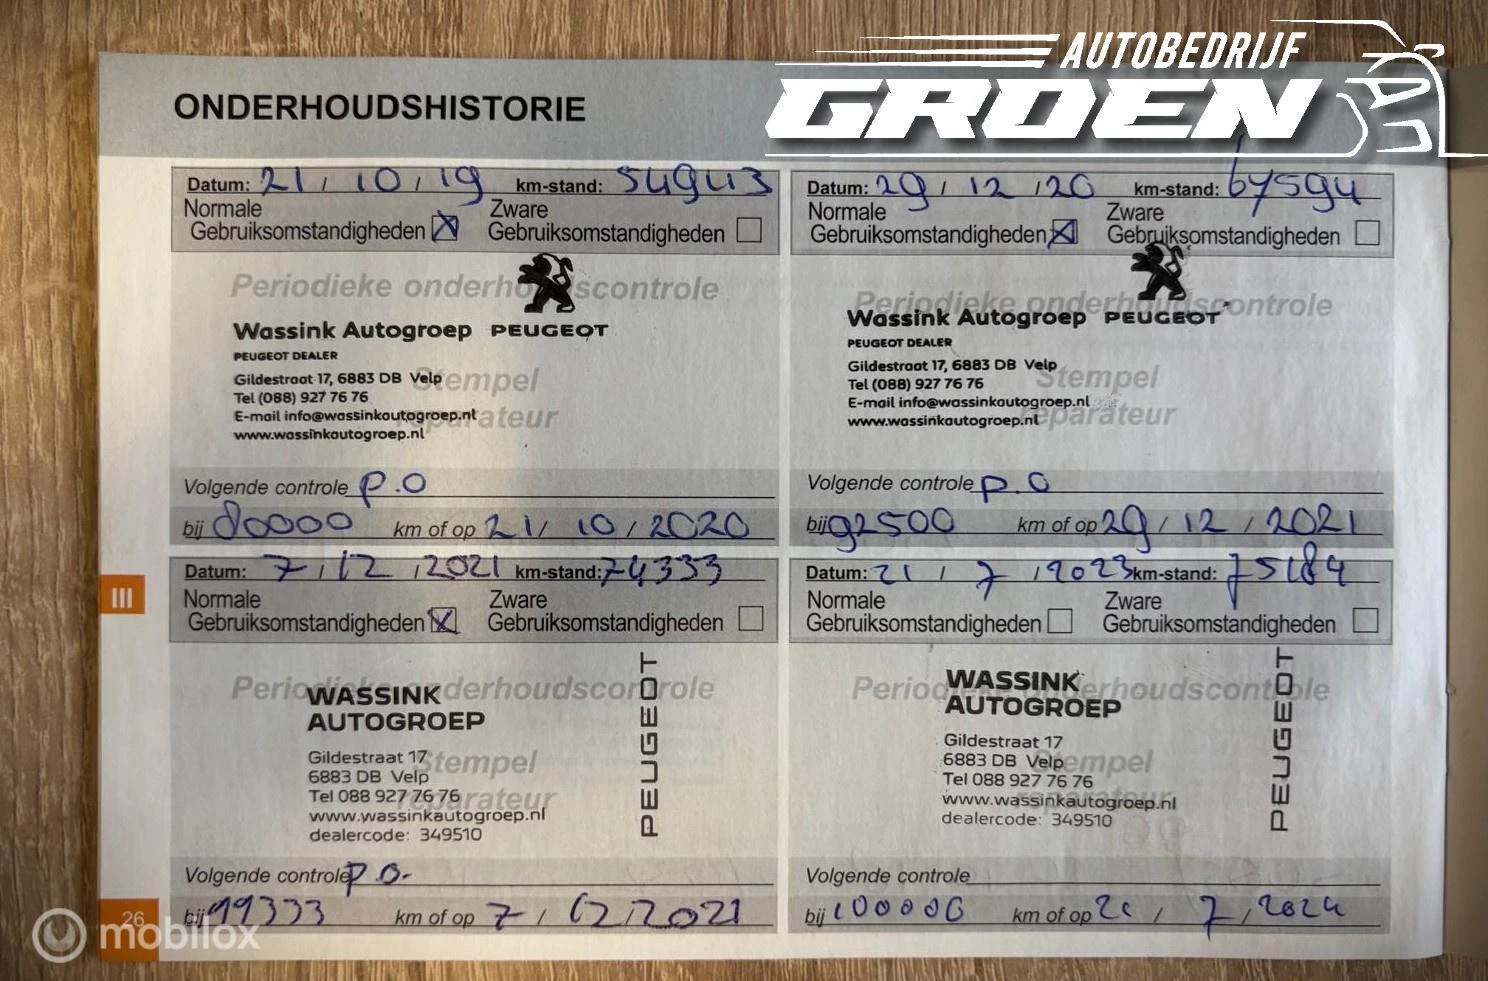 AUTOBEDRIJF
GROEN
ONDERHOUDSHISTORIE
Datum: 21 / 10 / 19 km-stand: 54943
Normale Zware
Gebruiksomstandigheden Gebruiksomstandigheden
Periodieke onderhoudscontrole
Wassink Autogroep PEUGEOT
PEUGEOT DEALER
Gildestraat 17, 6883 DB Velp
Stempel
Tel (088) 927 76 76
E-mail info@wassinkautogroep.nl
reparateur
www.wassinkautogroep.nl
Volgende controle P.O
bij 80000 km of op 21 / 10 / 2020
Datum: 29 / 12 / 20 km-stand: 67594
Normale Zware
Gebruiksomstandigheden Gebruiksomstandigheden
Periodieke onderhoudscontrole
Wassink Autogroep PEUGEOT
PEUGEOT DEALER
Gildestraat 17, 6883 DB Velp
Stempel
Tel (088) 927 76 76
E-mail info@wassinkautogroep.nl
reparateur
www.wassinkautogroep.nl
Volgende controle P.O
bij 92500 km of op 29 / 12 / 2021
Datum: 7 / 12 / 2021 km-stand: 74333
Normale Zware
Gebruiksomstandigheden Gebruiksomstandigheden
Periodieke onderhoudscontrole
WASSINK
AUTOGROEP
PEUGEOT
Gildestraat 17
Stempel
6883 DB Velp
Tel 088 927 76 76
reparateur
www.wassinkautogroep.nl
dealercode: 349510
Volgende controle P.O.
bij 99333 km of op 7 / 12 / 2021
Datum: 21 / 7 / 2023 km-stand: 75184
Normale Zware
Gebruiksomstandigheden Gebruiksomstandigheden
Periodieke onderhoudscontrole
WASSINK
AUTOGROEP
PEUGEOT
Gildestraat 17
6883 DB Velp
Stempel
Tel 088 927 76 76
reparateur
www.wassinkautogroep.nl
dealercode: 349510
Volgende controle
bij 100000 km of op 21 / 7 / 2024
III
26
mobilox